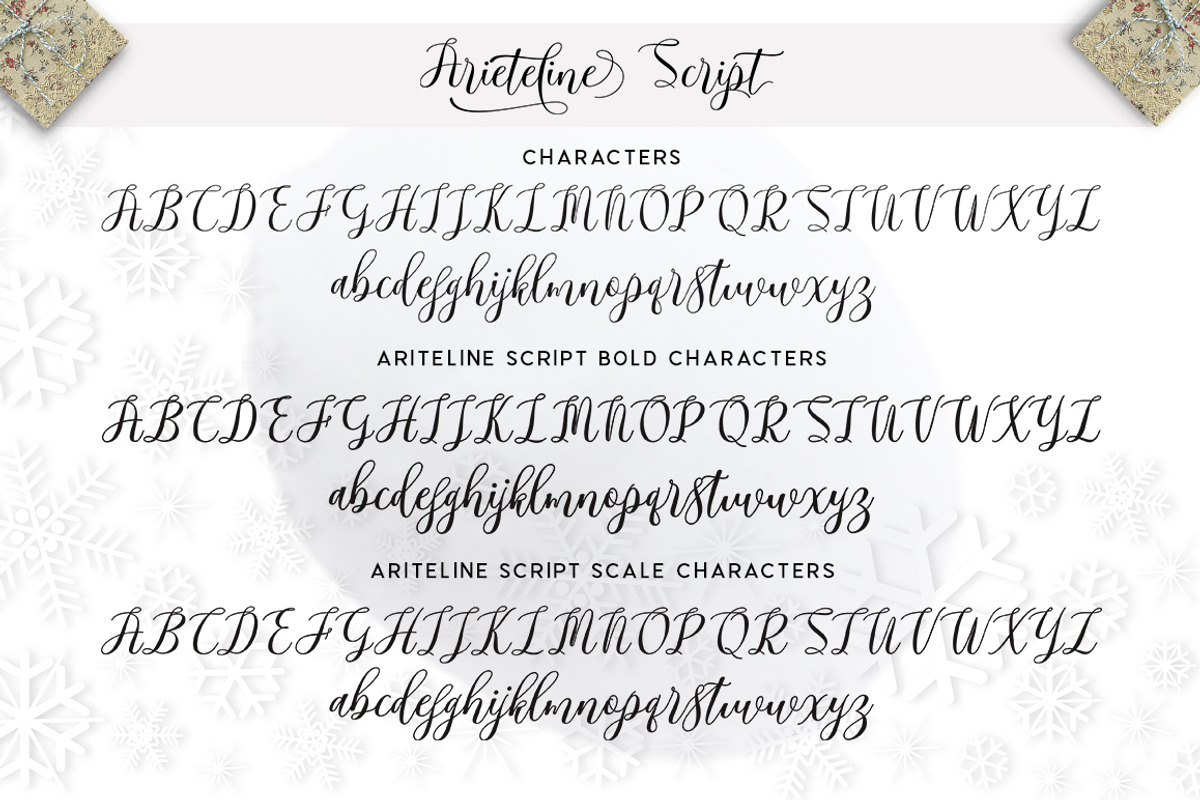 Arieteline Script
CHARACTERS
ABCDEFGHIJKLMNOPQRSTUVWXYZ
abcdefghijklmnopqrstuvwxyz
ARITELINE SCRIPT BOLD CHARACTERS
ABCDEFGHIJKLMNOPQRSTUVWXYZ
abcdefghijklmnopqrstuvwxyz
ARITELINE SCRIPT SCALE CHARACTERS
ABCDEFGHIJKLMNOPQRSTUVWXYZ
abcdefghijklmnopqrstuvwxyz